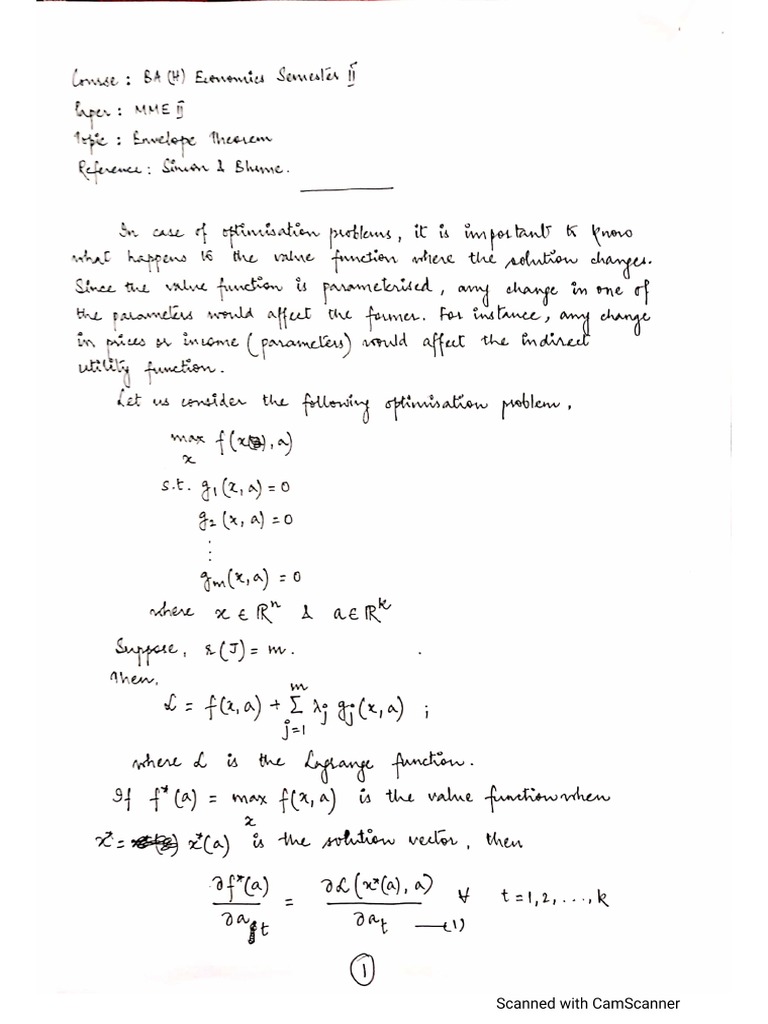 Course : BA (H) Economics Semester II
Paper : MME II
Topic : Envelope Theorem
Reference : Simon & Blume.
In case of optimisation problems, it is important to know
what happens to the value function where the solution changes.
Since the value function is parameterised, any change in one of
the parameters would affect the former. For instance, any change
in prices or income (parameters) would affect the indirect
utility function.
Let us consider the following optimisation problem,
max f(x, a)
x
s.t. g₁(x, a) = 0
g₂(x, a) = 0
⋮
gₘ(x, a) = 0
where x ∈ ℝⁿ & a ∈ ℝᵏ
Suppose, r(J) = m.
Then,
ℒ = f(x, a) + Σ_{j=1}^{m} λⱼ gⱼ(x, a) ;
where ℒ is the Lagrange function.
If f*(a) = max f(x, a) is the value function when
x
x* = x*(a) is the solution vector, then
∂f*(a)/∂aₜ = ∂ℒ(x*(a), a)/∂aₜ ∀ t = 1, 2, ..., k —(1)
1
Scanned with CamScanner